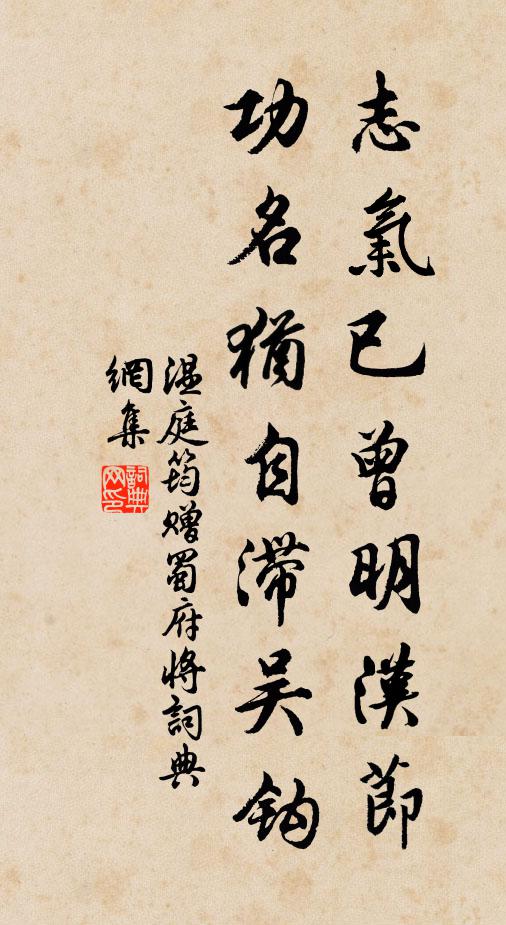 志氣已曾明漢節
功名猶自滯吴鈎
温庭筠贈蜀府將詞典
網集
詞典網印